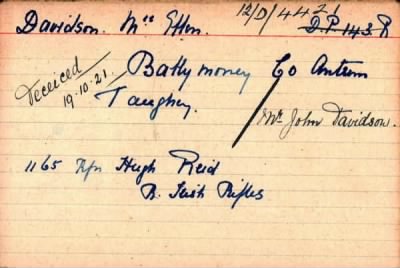 Davidson. Mrs Ellen. 12/D/4421
D.P. 143 R
Deceiced
19.10.21.
Ballymoney Co Antrim
Taughey.
Mr John Davidson.
1165 Rfn Hugh Reid
R. Irish Rifles